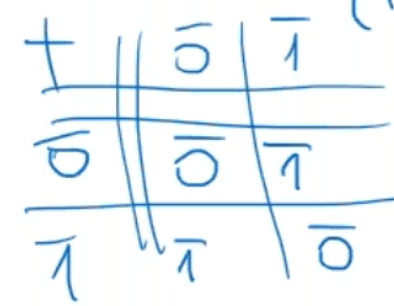 + 0̅ 1̅
0̅ 0̅ 1̅
1̅ 1̅ 0̅